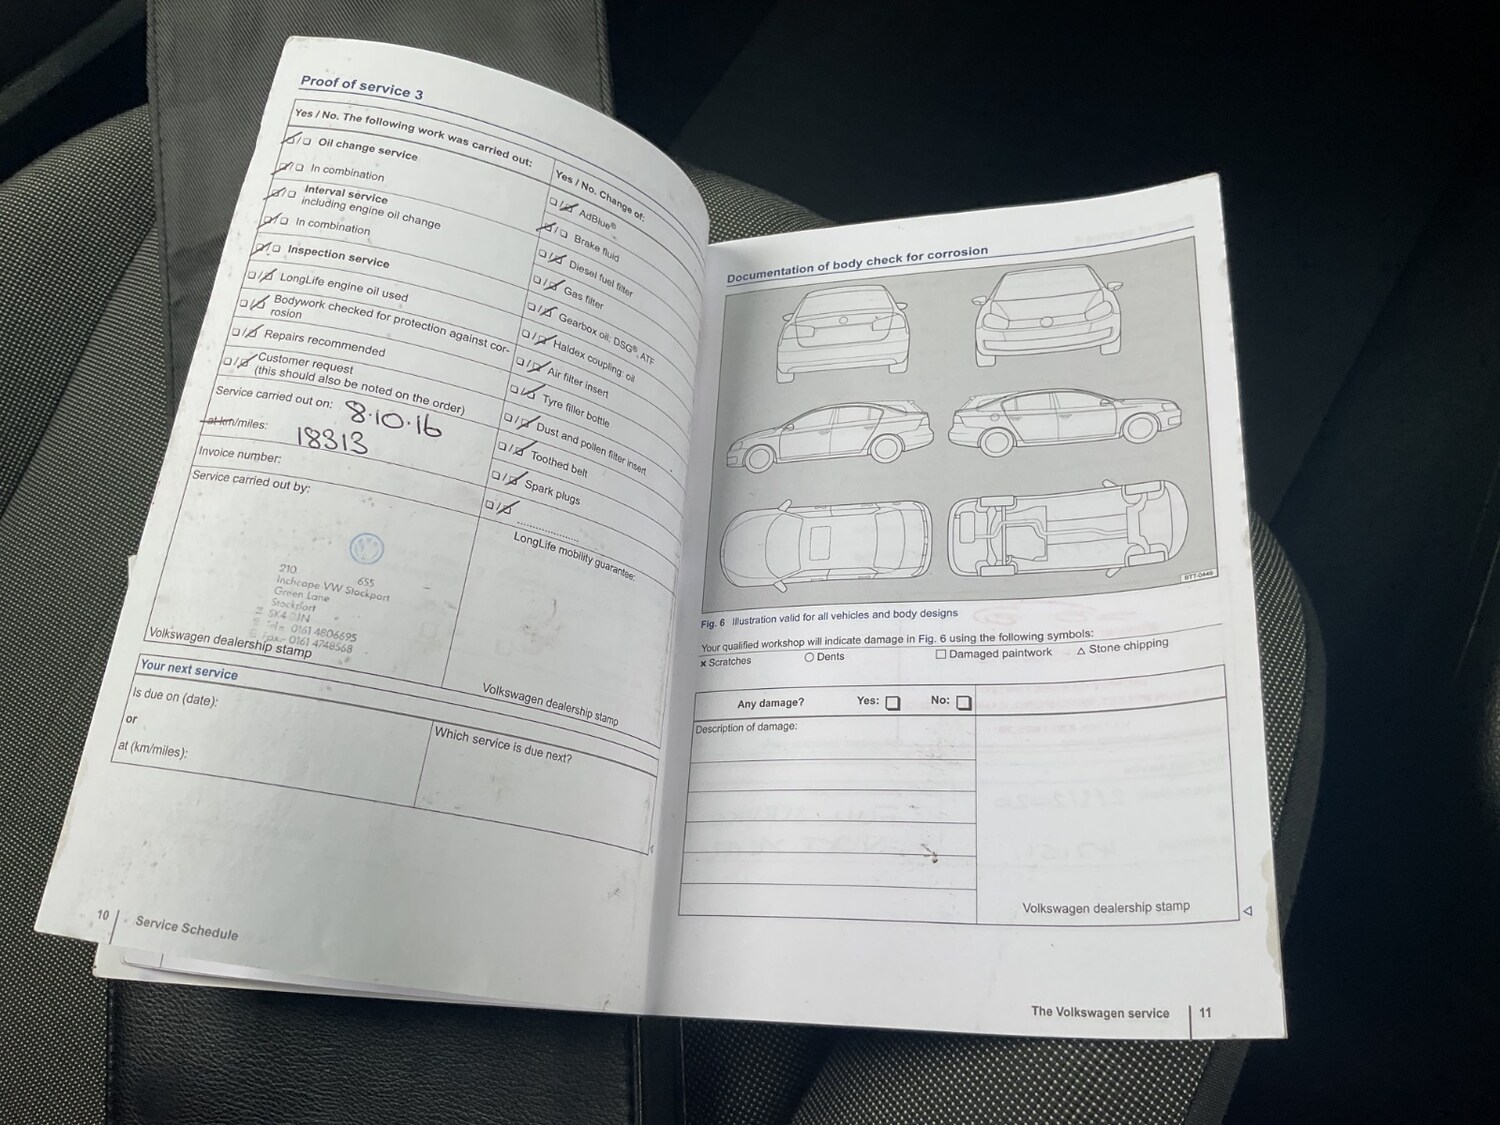 Proof of service 3
Yes / No. The following work was carried out:
Oil change service
In combination
Interval service
including engine oil change
In combination
Inspection service
LongLife engine oil used
Bodywork checked for protection against cor-
rosion
Repairs recommended
Customer request
(this should also be noted on the order)
Service carried out on: 8.10.16
at km/miles: 18313
Invoice number:
Service carried out by:
210 655
Inchcape VW Stockport
Green Lane
Stockport
SK4 2JN
0161 4806695
0161 4748568
Volkswagen dealership stamp
Yes / No. Change of:
AdBlue®
Brake fluid
Diesel fuel filter
Gas filter
Gearbox oil; DSG®, ATF
Haldex coupling: oil
Air filter insert
Tyre filler bottle
Dust and pollen filter insert
Toothed belt
Spark plugs
LongLife mobility guarantee:
Volkswagen dealership stamp
Your next service
Is due on (date):
or
at (km/miles):
Which service is due next?
10 Service Schedule
Documentation of body check for corrosion
BTT-0449
Fig. 6 Illustration valid for all vehicles and body designs
Your qualified workshop will indicate damage in Fig. 6 using the following symbols:
x Scratches O Dents □ Damaged paintwork △ Stone chipping
Any damage? Yes: □ No: □
Description of damage:
Volkswagen dealership stamp
The Volkswagen service 11